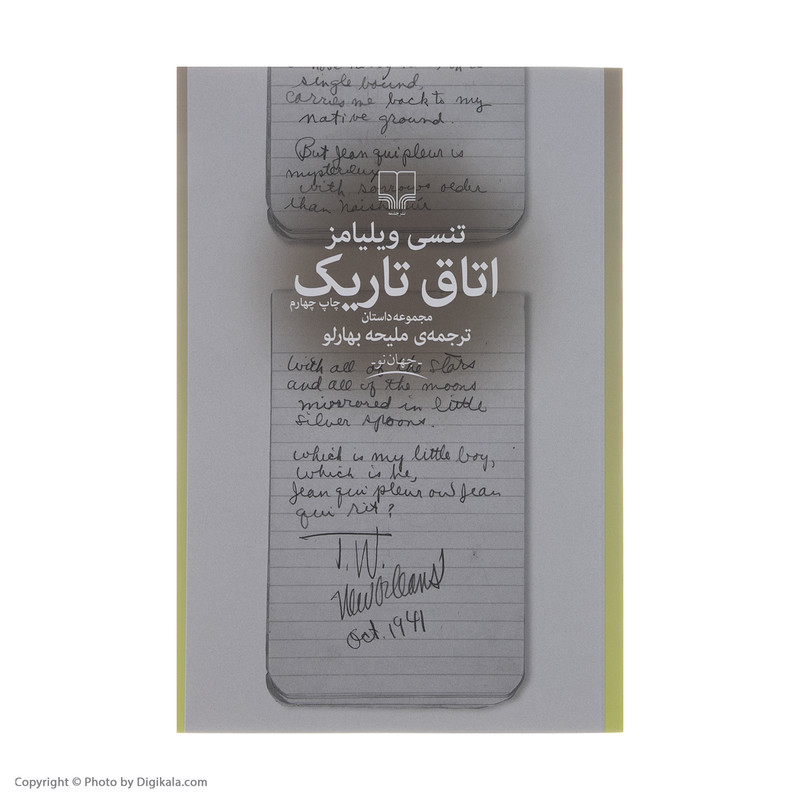 single bound,
carries me back to my
native ground.
But Jean qui pleur is
mysterieux
with sorrows older
than
نشر چشمه
تنسی ویلیامز
اتاق تاریک
چاپ چهارم
مجموعه داستان
ترجمه‌ی ملیحه بهارلو
ـ جهان نو ـ
With all of the stars
and all of the moons
mirrored in little
silver spoons.
which is my little boy,
which is he,
Jean qui pleur ou Jean
qui rit?
T.W.
New Orleans
Oct. 1941
Copyright © Photo by Digikala.com